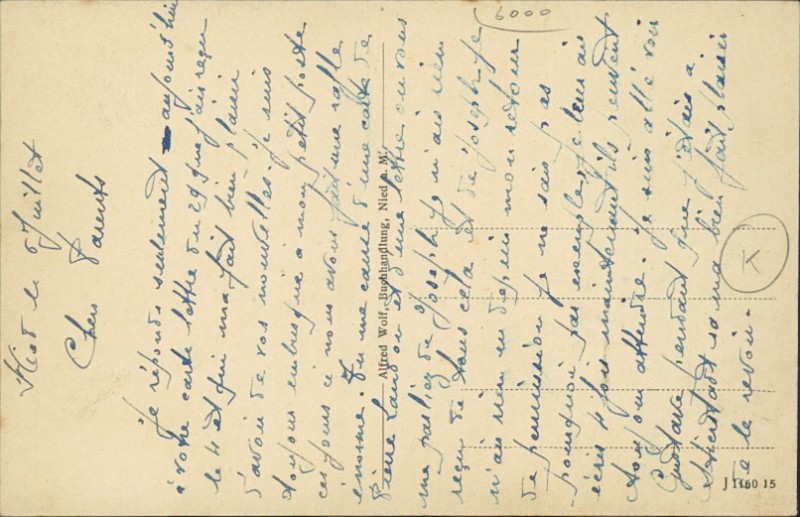 Nied le 6 Juillet
Chers Parents
Je réponds seulement aujourd'hui
à votre carte lettre du 29 que j'ai reçu
le 4 et qui m'a fait bien plaisir
d'avoir de vos nouvelles. Je suis
toujours embusqué à mon petit poste
ces jours ci nous avons fait une rafle
énorme. J'ai une carte de
Pierre et d'une lettre ou vous
me parliez de Joseph Je n'ai rien
reçu de tous cela et de Joseph je
n'ai rien eu depuis mon retour
de permission je ne sais pas
pourquoi par exemple, je leur ai
écris 4 fois maintenant ils peuvent
toujours attendre. Je suis allé voir
Gustave pendant que j'étais à
ça m'a bien fait plaisir
de le revoir.
Alfred Wolf, Buchhandlung, Nied a. M.
J 1160 15
6000
K